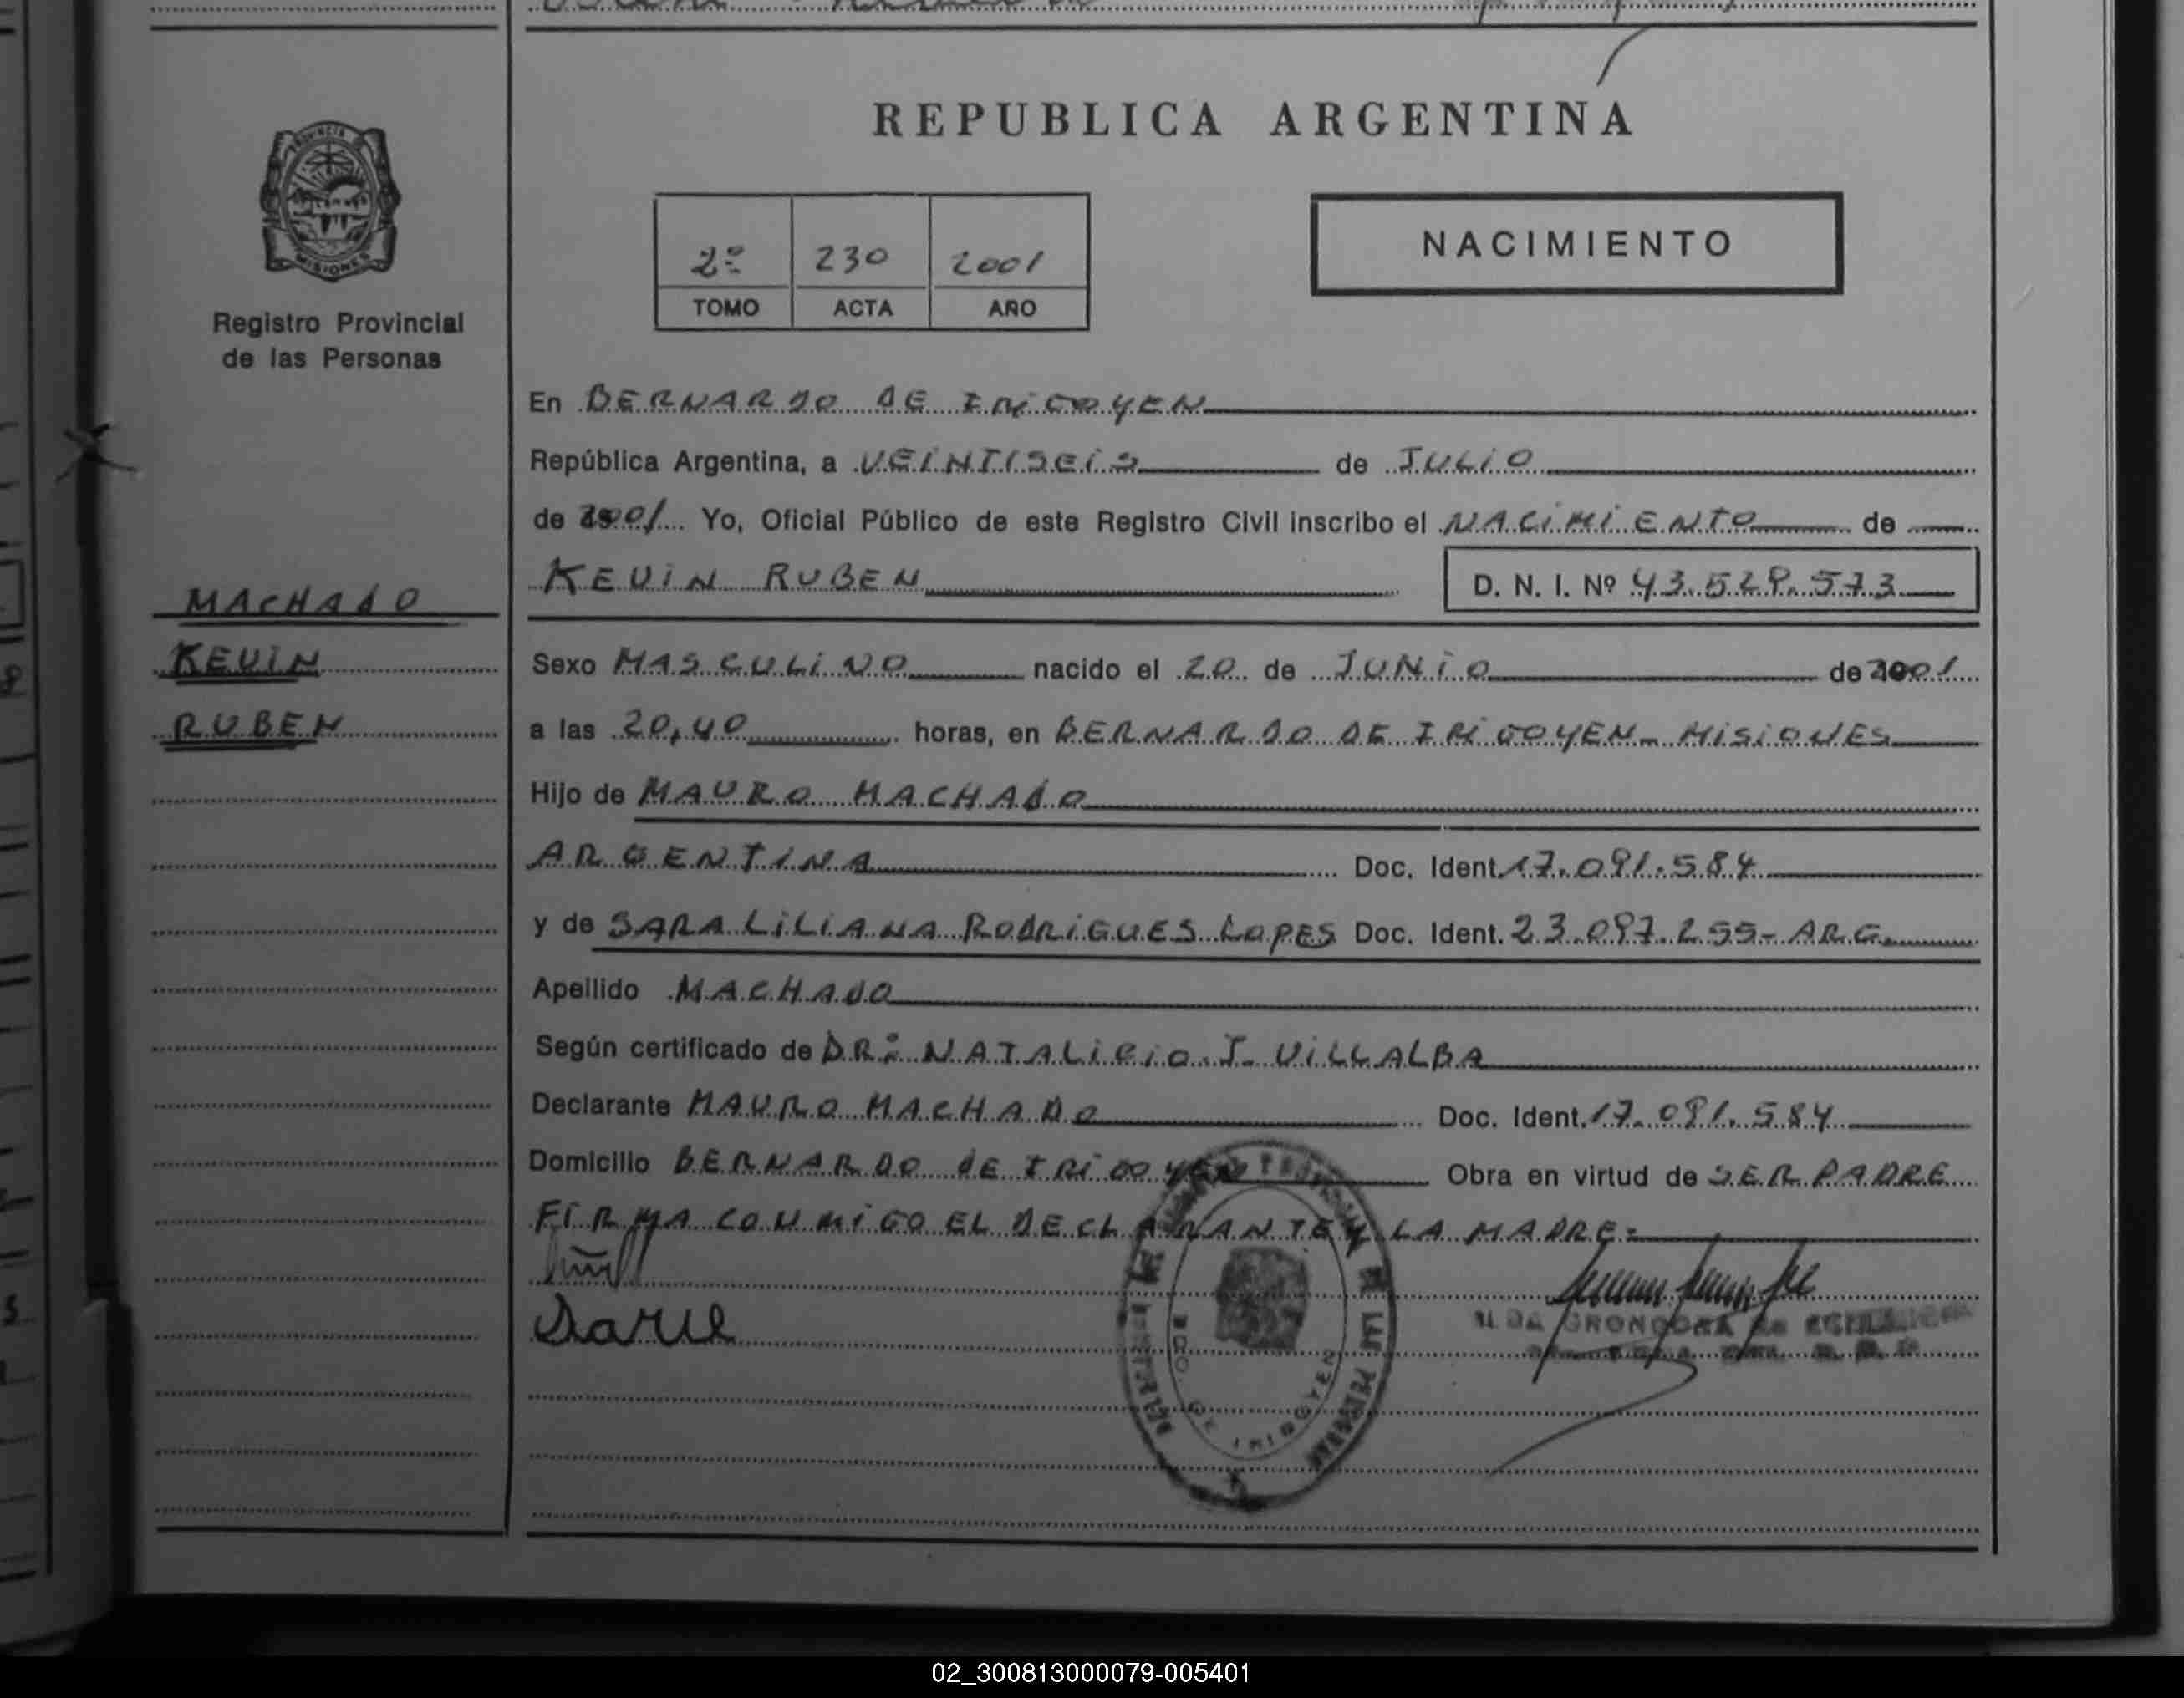 REPUBLICA ARGENTINA
PROVINCIA
MISIONES
Registro Provincial
de las Personas
2º 230 2001
TOMO ACTA AÑO
NACIMIENTO
En BERNARDO DE IRIGOYEN
República Argentina, a VEINTISEIS de JULIO
de 2001 Yo, Oficial Público de este Registro Civil inscribo el NACIMIENTO de
KEVIN RUBEN
D. N. I. Nº 43.529.573
MACHADO
KEVIN
RUBEN
Sexo MASCULINO nacido el 20 de JUNIO de 2001
a las 20,40 horas, en BERNARDO DE IRIGOYEN - MISIONES
Hijo de MAURO MACHADO
ARGENTINA Doc. Ident. 17.091.584
y de SARA LILIANA RODRIGUES LOPES Doc. Ident. 23.097.255- ARG.
Apellido MACHADO
Según certificado de DR: NATALICIO J. VILLALBA
Declarante MAURO MACHADO Doc. Ident. 17.091.584
Domicilio BERNARDO DE IRIGOYEN Obra en virtud de SER PADRE
FIRMA CONMIGO EL DECLARANTE Y LA MADRE:
BDO. DE IRIGOYEN
02_300813000079-005401